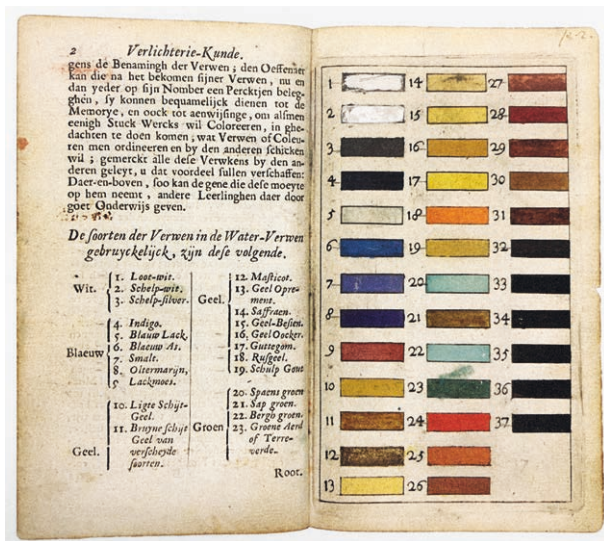 2
Verlichterie-Kunde.
gens de Benamingh der Verwen ; den Oeffenaer
kan die na het bekomen sijner Verwen , nu en
dan yeder op sijn Nomber een Percktjen beleg-
ghen , sy konnen bequamelijck dienen tot de
Memorye, en oock tot aenwijsinge, om alsmen
eenigh Stuck Wercks wil Coloreeren , in ghe-
dachten te doen komen , wat Verwen of Coleu-
ren men ordineeren en by den anderen schicken
wil ; gemerckt alle dese Verwkens by den an-
deren geleyt, u dat voordeel sullen verschaffen:
Daer-en-boven , soo kan de gene die dese moeyte
op hem neemt , andere Leerlinghen daer door
goet Onderwijs geven.
De soorten der Verwen in de Water-Verwen
gebruyckelijck, zijn dese volgende.
Wit.
1. Loot-wit.
2. Schelp-wit.
3. Schelp-silver.
Blaeuw
4. Indigo.
5. Blauw Lack.
6. Blaeuw As.
7. Smalt.
8. Oltermarijn,
9 Lackmoes.
Geel.
10. Ligte Schijt-
Geel.
11. Bruyne schijt
Geel van
verscheyde
soorten.
Geel.
12. Masticot.
13. Geel Opre-
ment.
14. Saffraen.
15. Geel-Besien.
16. Geel Oocker.
17. Guttegom.
18. Rusgeel.
19. Schulp Gout
Groen
20. Spaens groen
21. Sap groen.
22. Bergh groen.
23. Groene Aerd
of Terre-
verde.
Root.
1 14 27
2 15 28
3 16 29
4 17 30
5 18 31
6 19 32
7 20 33
8 21 34
9 22 35
10 23 36
11 24 37
12 25
13 26